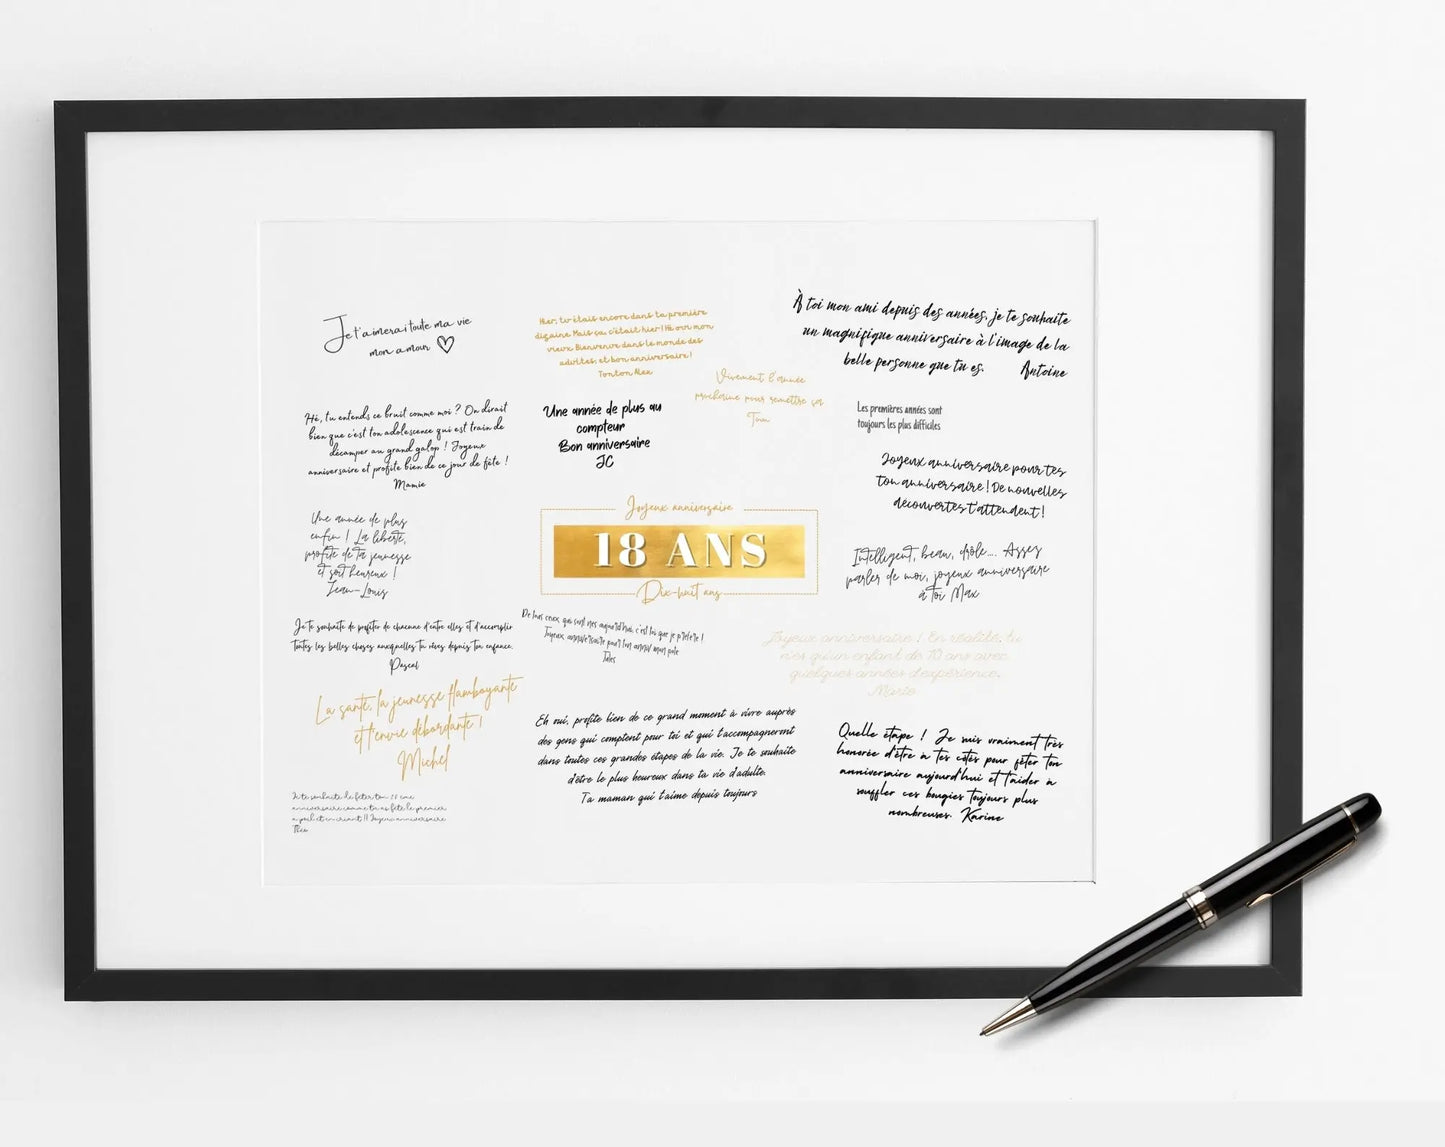 Je t'aimerai toute ma vie
mon amour
Hier, tu étais encore dans ta première
dizaine. Mais ça, c'était hier ! Hé oui mon
vieux. Bienvenve dans le monde des
adultes, et bon anniversaire !
Tonton Alex
À toi mon ami depuis des années, je te souhaite
un magnifique anniversaire à l'image de la
belle personne que tu es. Antoine
Vivement l'année
prochaine pour remettre ça
Tom
Hé, tu entends ce bruit comme moi ? On dirait
bien que c'est ton adolescence qui est train de
décamper au grand galop ! Joyeux
anniversaire et profite bien de ce jour de fête !
Mamie
Une année de plus au
compteur
Bon anniversaire
JC
Les premières années sont
toujours les plus difficiles
Joyeux anniversaire pour tes
ton anniversaire ! De nouvelles
découvertes t'attendent !
Une année de plus
enfin ! La liberté,
profite de ta jeunesse
et soit heureux !
Jean-Louis
Joyeux anniversaire
18 ANS
Dix-huit ans
Intelligent, beau, drôle.... Assez
parler de moi, joyeux anniversaire
à toi Max
Je te souhaite de profiter de chacune d'entre elles et d'accomplir
toutes les belles choses auxquelles tu rêves depuis ton enfance.
Pascal
De tous ceux qui sont nés aujourd'hui, c'est toi que je préfère !
Joyeux anniversaire pour ton anniv mon pote
Jules
Joyeux anniversaire ! En réalité, tu
n'es qu'un enfant de 10 ans avec
quelques années d'expérience.
Marie
La santé, la jeunesse flamboyante
et l'envie débordante !
Michel
Eh oui, profite bien de ce grand moment à vivre auprès
des gens qui comptent pour toi et qui t'accompagneront
dans toutes ces grandes étapes de la vie. Je te souhaite
d'être le plus heureux dans ta vie d'adulte.
Ta maman qui t'aime depuis toujours
Quelle étape ! Je suis vraiment très
honorée d'être à tes côtés pour fêter ton
anniversaire aujourd'hui et t'aider à
souffler ces bougies toujours plus
nombreuses. Karine
Je te souhaite de fêter ton
anniversaire comme tu as fêté le premier
à poil et en criant !! Joyeux anniversaire
Théo